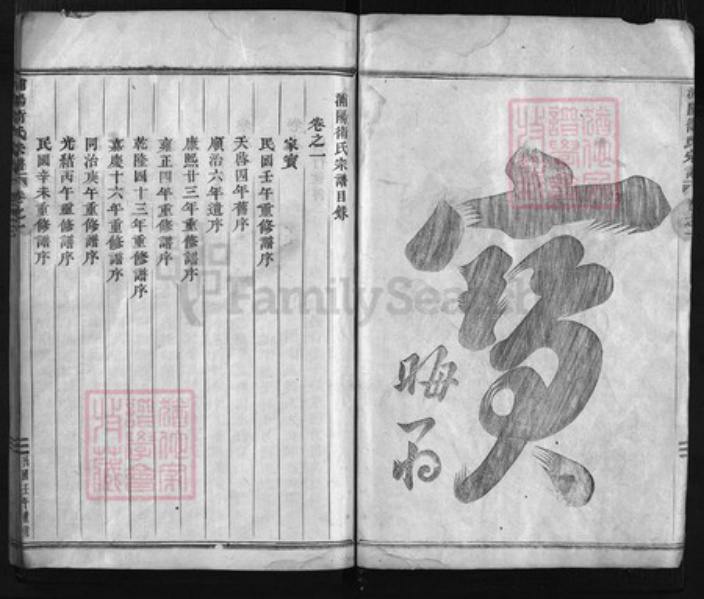 寶
晦翁
蒲陽衛氏宗譜目錄
卷之一
家寶
民國壬午重修譜序
天啓四年舊序
順治六年遺序
康熙廿三年重修譜序
雍正四年重修譜序
乾隆四十三年重修譜序
嘉慶十六年重修譜序
同治庚午重修譜序
光緒丙午重修譜序
民國辛未重修譜序
FamilySearch